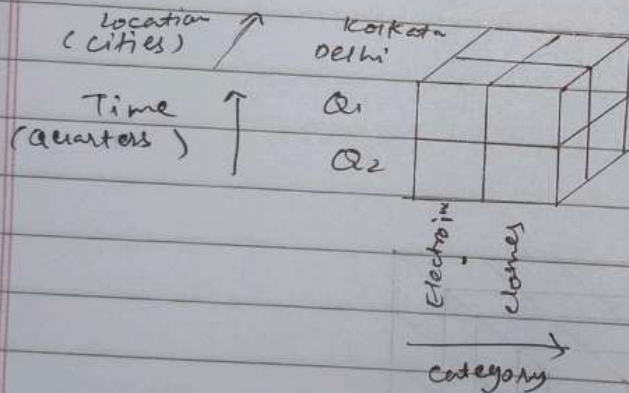 Location
(cities)
Kolkata
Delhi
Time
(Quarters)
Q1
Q2
Electroin
Clothes
category